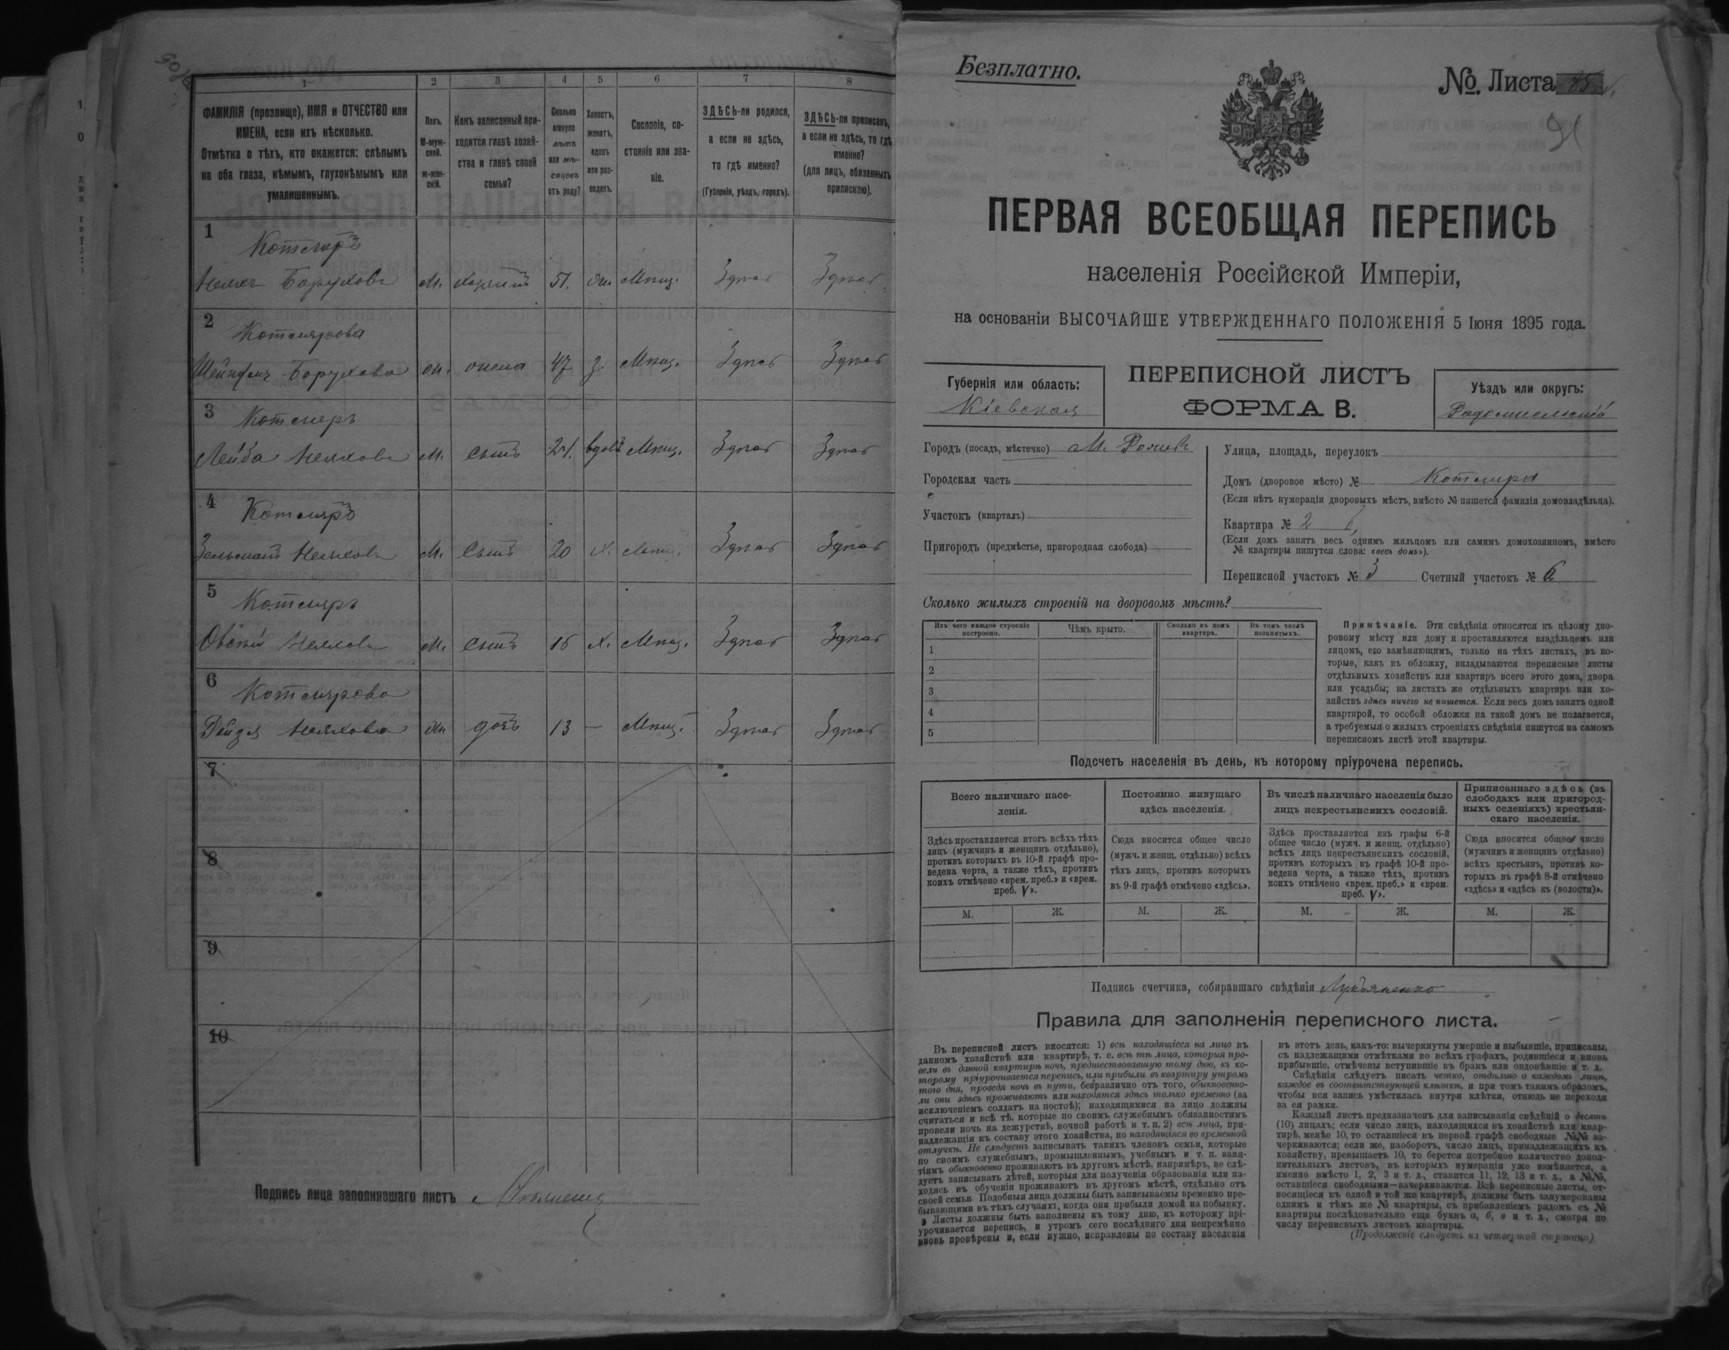 1
2
3
4
5
6
7
8
ФАМИЛІЯ (прозвище), ИМЯ и ОТЧЕСТВО или
ИМЕНА, если ихъ нѣсколько.
Отмѣтка о тѣхъ, кто окажется: слѣпымъ
на оба глаза, нѣмымъ, глухонѣмымъ или
умалишеннымъ.
Полъ.
М-муж-
ской.
ж-жен-
скій.
Какъ записанный при-
ходится главѣ хозяй-
ства и главѣ своей
семьи?
Сколько
минуло
лѣтъ
или мѣ-
сяцевъ
отъ роду?
Холостъ,
женатъ,
вдовъ
или раз-
веденъ.
Сословіе, со-
стояніе или зва-
ніе.
ЗДѢСЬ-ли родился,
а если не здѣсь,
то гдѣ именно?
(Губернія, уѣздъ, городъ).
ЗДѢСЬ-ли приписанъ,
а если не здѣсь, то гдѣ
именно?
(для лицъ, обязанныхъ
припискою).
1
Котляръ
Боруховъ м. хозяинъ 51. Мѣщ. Здѣсь Здѣсь
2
Котлярова
Борухова жена 47 Мѣщ. Здѣсь Здѣсь
3
Котляръ
Лейба м. сынъ вдовъ Мѣщ. Здѣсь Здѣсь
4
Котляръ
Зельманъ м. сынъ 20 х. Мѣщ. Здѣсь Здѣсь
5
Котляръ
Овсѣй м. сынъ х. Мѣщ. Здѣсь Здѣсь
6
Котлярова
Рейзя дочь 13 — Мѣщ. Здѣсь Здѣсь
7
8
9
10
Подпись лица заполнявшаго листъ
Безплатно.
№ Листа 85
91
ПЕРВАЯ ВСЕОБЩАЯ ПЕРЕПИСЬ
населенія Россійской Имперіи,
на основаніи ВЫСОЧАЙШЕ УТВЕРЖДЕННАГО ПОЛОЖЕНІЯ 5 Іюня 1895 года.
Губернія или область:
Кіевская
ПЕРЕПИСНОЙ ЛИСТЪ
ФОРМА В.
Уѣздъ или округъ:
Радомысльскій
Городъ (посадъ, мѣстечко) М.
Городская часть
Участокъ (кварталъ)
Пригородъ (предмѣстье, пригородная слобода)
Улица, площадь, переулокъ
Домъ (дворовое мѣсто) № Котляра
(Если нѣтъ нумераціи дворовыхъ мѣстъ, вмѣсто № пишется фамилія домовладѣльца).
Квартира № 2
(Если домъ занятъ весь однимъ жильцомъ или самимъ домохозяиномъ, вмѣсто
№ квартиры пишутся слова: «весь домъ»).
Переписной участокъ № 3 Счетный участокъ № 6
Сколько жилыхъ строеній на дворовомъ мѣстѣ?
Изъ чего каждое строеніе
построено.
Чѣмъ крыто.
Сколько въ немъ
квартиръ.
Въ томъ числѣ
незанятыхъ.
1
2
3
4
5
Примѣчаніе. Эти свѣдѣнія относятся къ цѣлому дво-
ровому мѣсту или дому и проставляются владѣльцемъ или
лицомъ, его замѣняющимъ, только на тѣхъ листахъ, въ ко-
торые, какъ въ обложку, вкладываются переписные листы
отдѣльныхъ хозяйствъ или квартиръ всего этого дома, двора
или усадьбы; на листахъ же отдѣльныхъ квартиръ или хо-
зяйствъ здѣсь ничего не пишется. Если весь домъ занятъ одной
квартирой, то особой обложки на такой домъ не полагается,
а требуемыя о жилыхъ строеніяхъ свѣдѣнія пишутся на самомъ
переписномъ листѣ этой квартиры.
Подсчетъ населенія въ день, къ которому пріурочена перепись.
Всего наличнаго насе-
ленія.
Здѣсь проставляется итогъ всѣхъ тѣхъ
лицъ (мужчинъ и женщинъ отдѣльно),
противъ которыхъ въ 10-й графѣ про-
ведена черта, а также тѣхъ, противъ
коихъ отмѣчено «врем. преб.» и «врем.
преб. V».
Постоянно живущаго
здѣсь населенія.
Сюда вносится общее число
(мужч. и женщ. отдѣльно) всѣхъ
тѣхъ лицъ, противъ которыхъ
въ 9-й графѣ отмѣчено «здѣсь».
Въ числѣ наличнаго населенія было
лицъ некрестьянскихъ сословій.
Здѣсь проставляется изъ графы 6-й
общее число (мужч. и женщ. отдѣльно)
всѣхъ лицъ некрестьянскихъ сословій,
противъ которыхъ въ графѣ 10-й про-
ведена черта, а также тѣхъ, противъ
коихъ отмѣчено «врем. преб.» и «врем.
преб. V».
Приписаннаго здѣсь (въ
слободахъ или пригород-
ныхъ селеніяхъ) крестьян-
скаго населенія.
Сюда вносится общее число
(мужчинъ и женщинъ отдѣльно)
всѣхъ крестьянъ, противъ ко-
торыхъ въ графѣ 8-й отмѣчено
«здѣсь» и «здѣсь къ (волости)».
М. Ж. М. Ж. М. Ж. М. Ж.
Подпись счетчика, собиравшаго свѣдѣнія Лукьяненко
Правила для заполненія переписного листа.
Въ переписной листъ вносятся: 1) всѣ находящіеся на лицо въ
данномъ хозяйствѣ или квартирѣ, т. е. всѣ тѣ лица, которыя про-
вели въ данной квартирѣ ночь, предшествовавшую тому дню, къ ко-
торому пріурочивается перепись, или прибыли въ квартиру утромъ
того дня, проведя ночь въ пути, безразлично отъ того, обыкновенно-
ли они здѣсь проживаютъ или находятся здѣсь только временно (за
исключеніемъ солдатъ на постоѣ); находящимися на лицо должны
считаться и всѣ тѣ, которые по своимъ служебнымъ обязанностямъ
провели ночь на дежурствѣ, ночной работѣ и т. п. 2) всѣ лица, при-
надлежащія къ составу этого хозяйства, но находящіяся во временной
отлучкѣ. Не слѣдуетъ записывать такихъ членовъ семьи, которые
по своимъ служебнымъ, промышленнымъ, учебнымъ и т. п. заня-
тіямъ обыкновенно проживаютъ въ другомъ мѣстѣ, напримѣръ, не слѣ-
дуетъ записывать дѣтей, которыя для полученія образованія или на-
ходясь въ обученіи проживаютъ въ другомъ мѣстѣ, отдѣльно отъ
своей семьи. Подобныя лица должны быть записываемы временно пре-
бывающими въ тѣхъ случаяхъ, когда они прибыли домой на побывку.
Листы должны быть заполнены къ тому дню, къ которому прі-
урочивается перепись, и утромъ сего послѣдняго дня непремѣнно
вновь провѣрены и, если нужно, исправлены по составу населенія
въ этотъ день, какъ-то: вычеркнуты умершіе и выбывшіе, приписаны,
съ надлежащими отмѣтками во всѣхъ графахъ, родившіеся и вновь
прибывшіе, отмѣчены вступившіе въ бракъ или овдовѣвшіе и т. д.
Свѣдѣнія слѣдуетъ писать четко, отдѣльно о каждомъ лицѣ,
каждое въ соотвѣтствующей клѣткѣ, и при томъ такимъ образомъ,
чтобы вся запись умѣстилась внутри клѣтки, отнюдь не переходя
за ея рамки.
Каждый листъ предназначенъ для записыванія свѣдѣній о десяти
(10) лицахъ; если число лицъ, находящихся въ хозяйствѣ или квар-
тирѣ, менѣе 10, то оставшіеся въ первой графѣ свободные №№ за-
черкиваются; если же, наоборотъ, число лицъ, принадлежащихъ къ
хозяйству, превышаетъ 10, то берется потребное количество допол-
нительныхъ листовъ, въ которыхъ нумерація уже измѣняется, а
именно вмѣсто 1, 2, 3 и т. д., ставится 11, 12, 13 и т. д., а №№,
оставшіеся свободными—зачеркиваются. Всѣ переписные листы, от-
носящіеся къ одной и той же квартирѣ, должны быть занумерованы
однимъ и тѣмъ же № квартиры, съ прибавленіемъ рядомъ съ №
квартиры послѣдовательно еще буквъ а, б, в и т. д., смотря по
числу переписныхъ листовъ квартиры.
(Продолженіе слѣдуетъ на четвертой страницѣ)